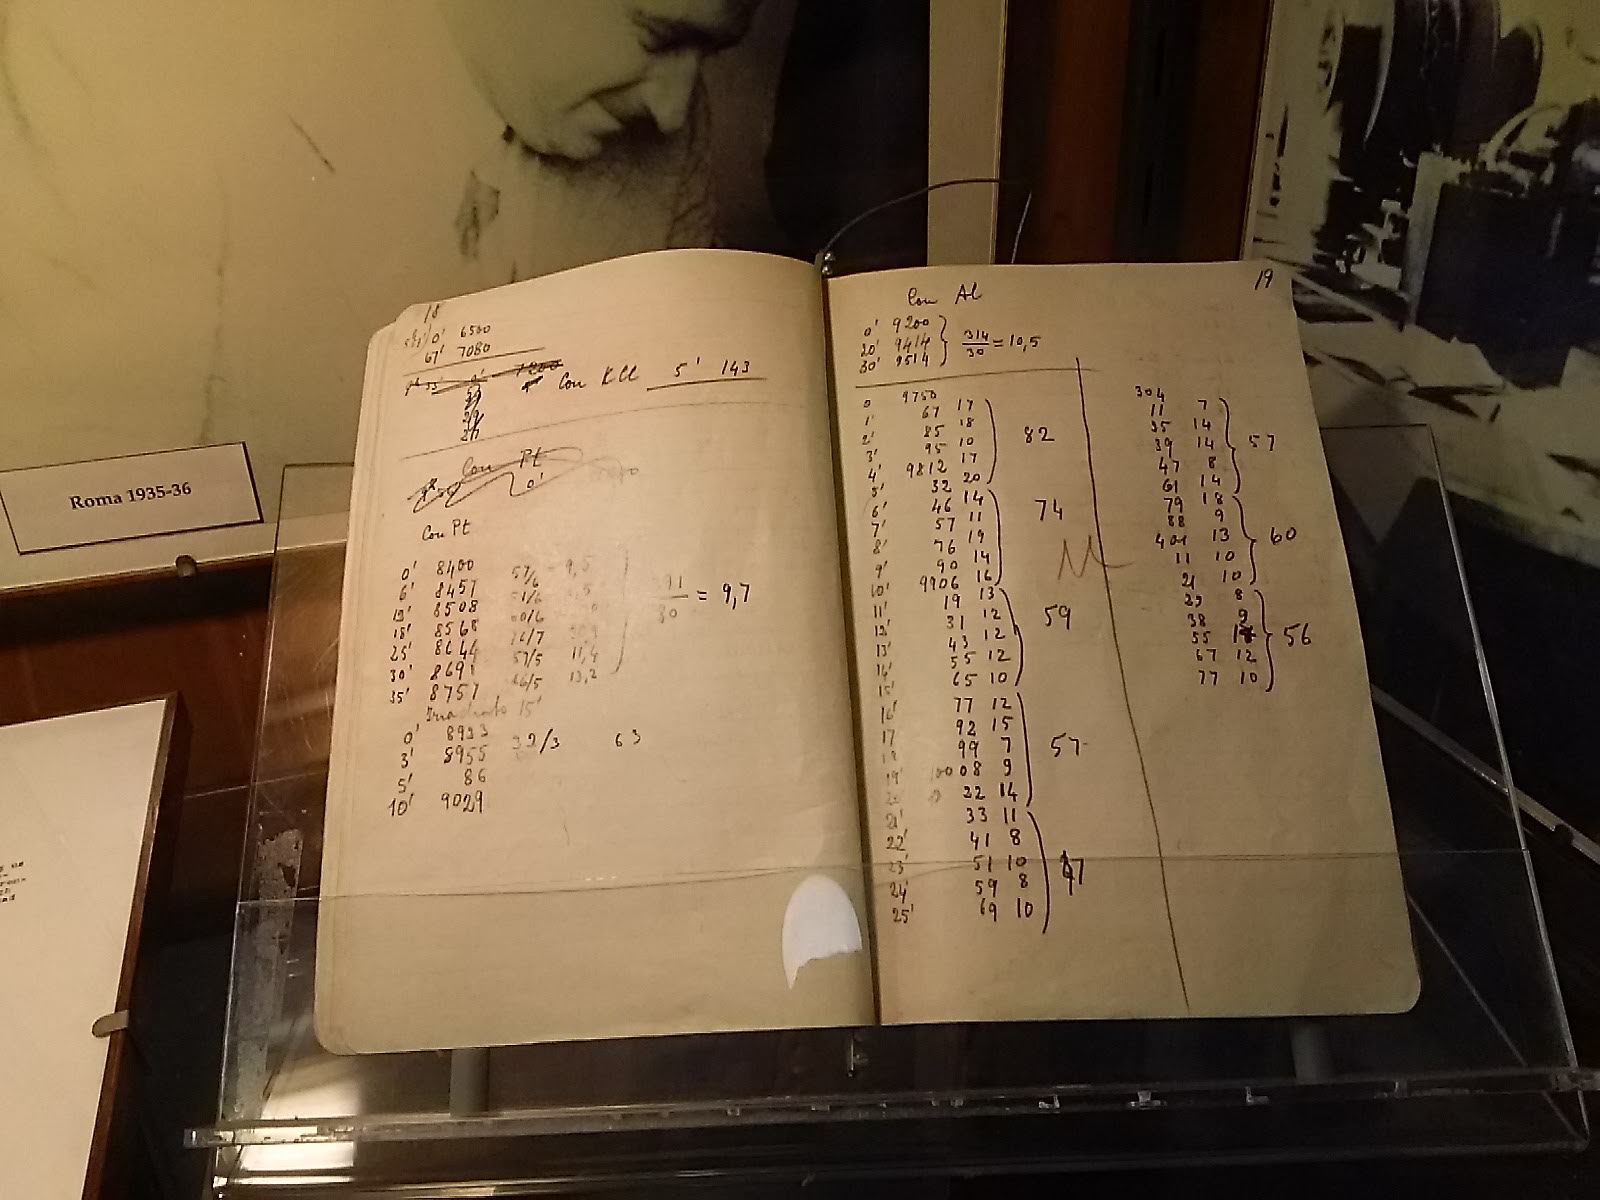 Roma 1935-36
18
0' 6500
67' 7080
Con KCl 5' 143
Con Pt
0'
Con Pt
0' 8400 57/6 9,5
6' 8457 51/6
12' 8508 60/6
18' 8568 76/7
25' 8644 57/5 11,4
30' 8691 66/5 13,2
35' 8757
291/30 = 9,7
Irradiato 15'
0' 8923
3' 8955 32/3 63
5' 86
10' 9029
19
Con Al
0' 9200
20' 9414
30' 9514
314/30 = 10,5
0 9750
1' 67 17
2' 85 18
3' 95 10
4' 9812 17
5' 32 20
82
6' 46 14
7' 57 11
8' 76 19
9' 90 14
10' 9906 16
74
11' 19 13
12' 31 12
13' 43 12
14' 55 12
15' 65 10
59
16' 77 12
17 92 15
18 99 7
19' 10008 9
20 22 14
57
21' 33 11
22' 41 8
23' 51 10
24' 59 8
25' 69 10
47
304
11 7
25 14
39 14
47 8
61 14
57
79 18
88 9
401 13
11 10
21 10
60
29 8
38 9
55 17
67 12
77 10
56